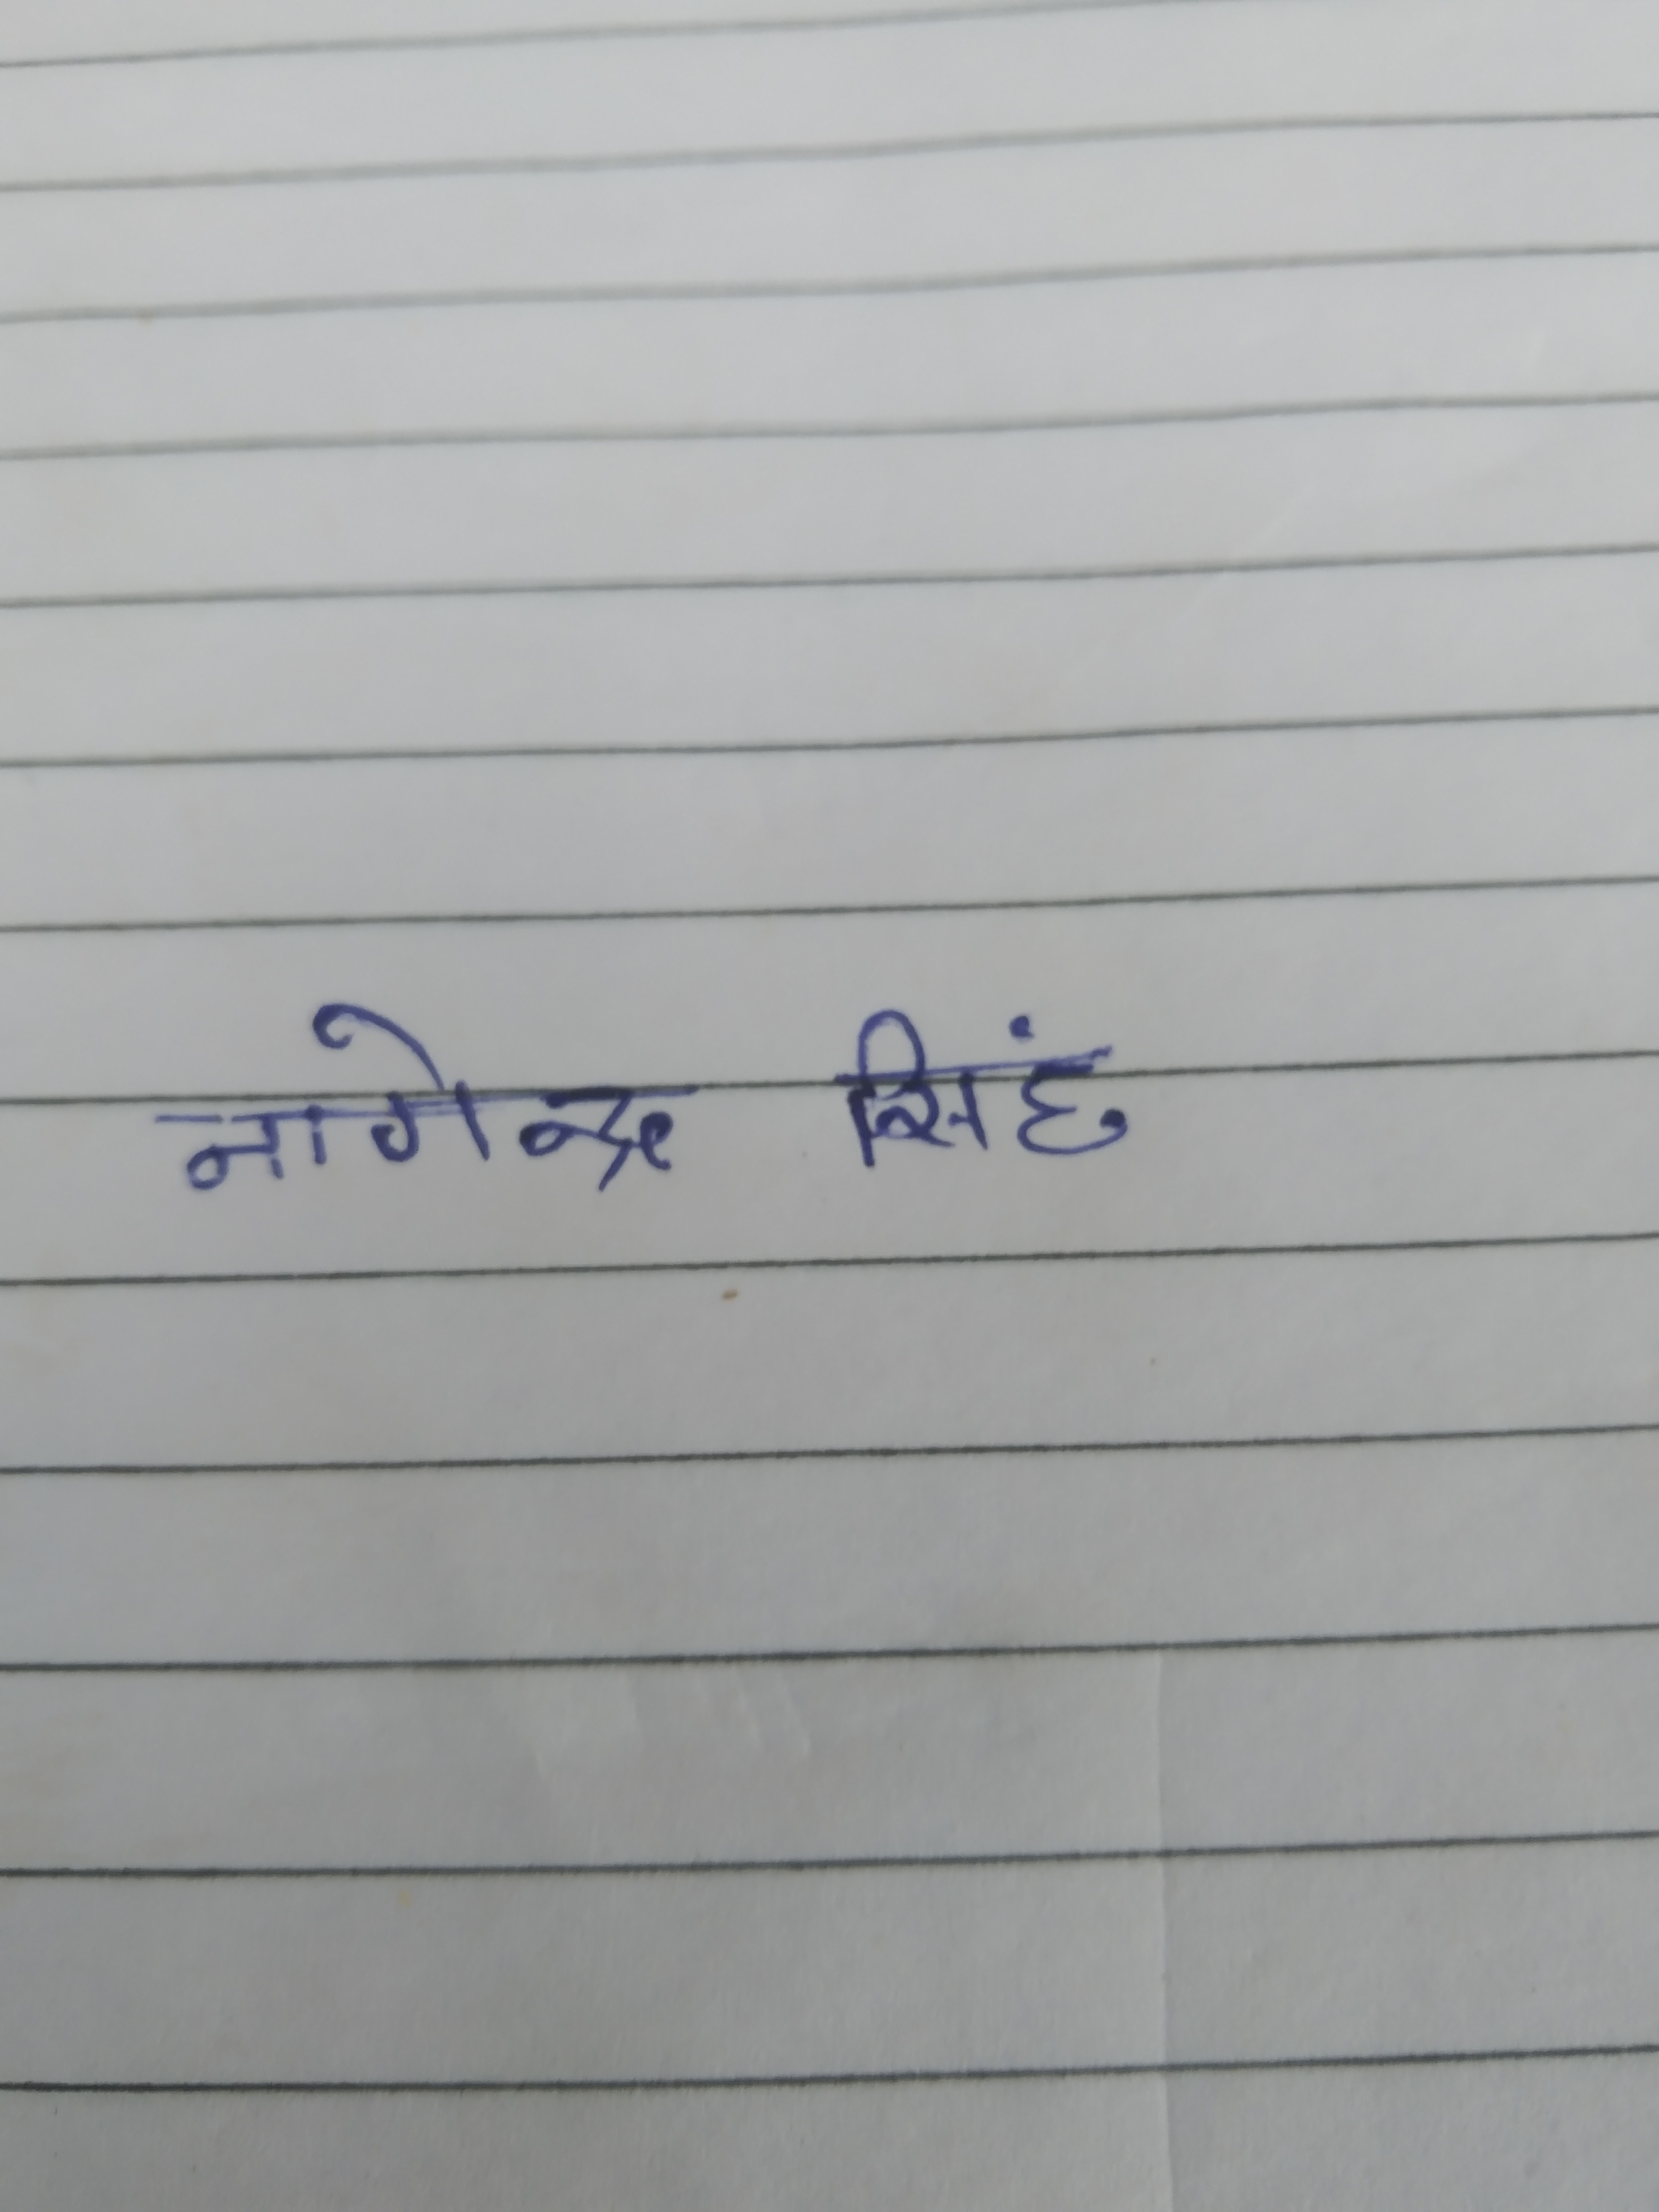 नागेन्द्र सिंह